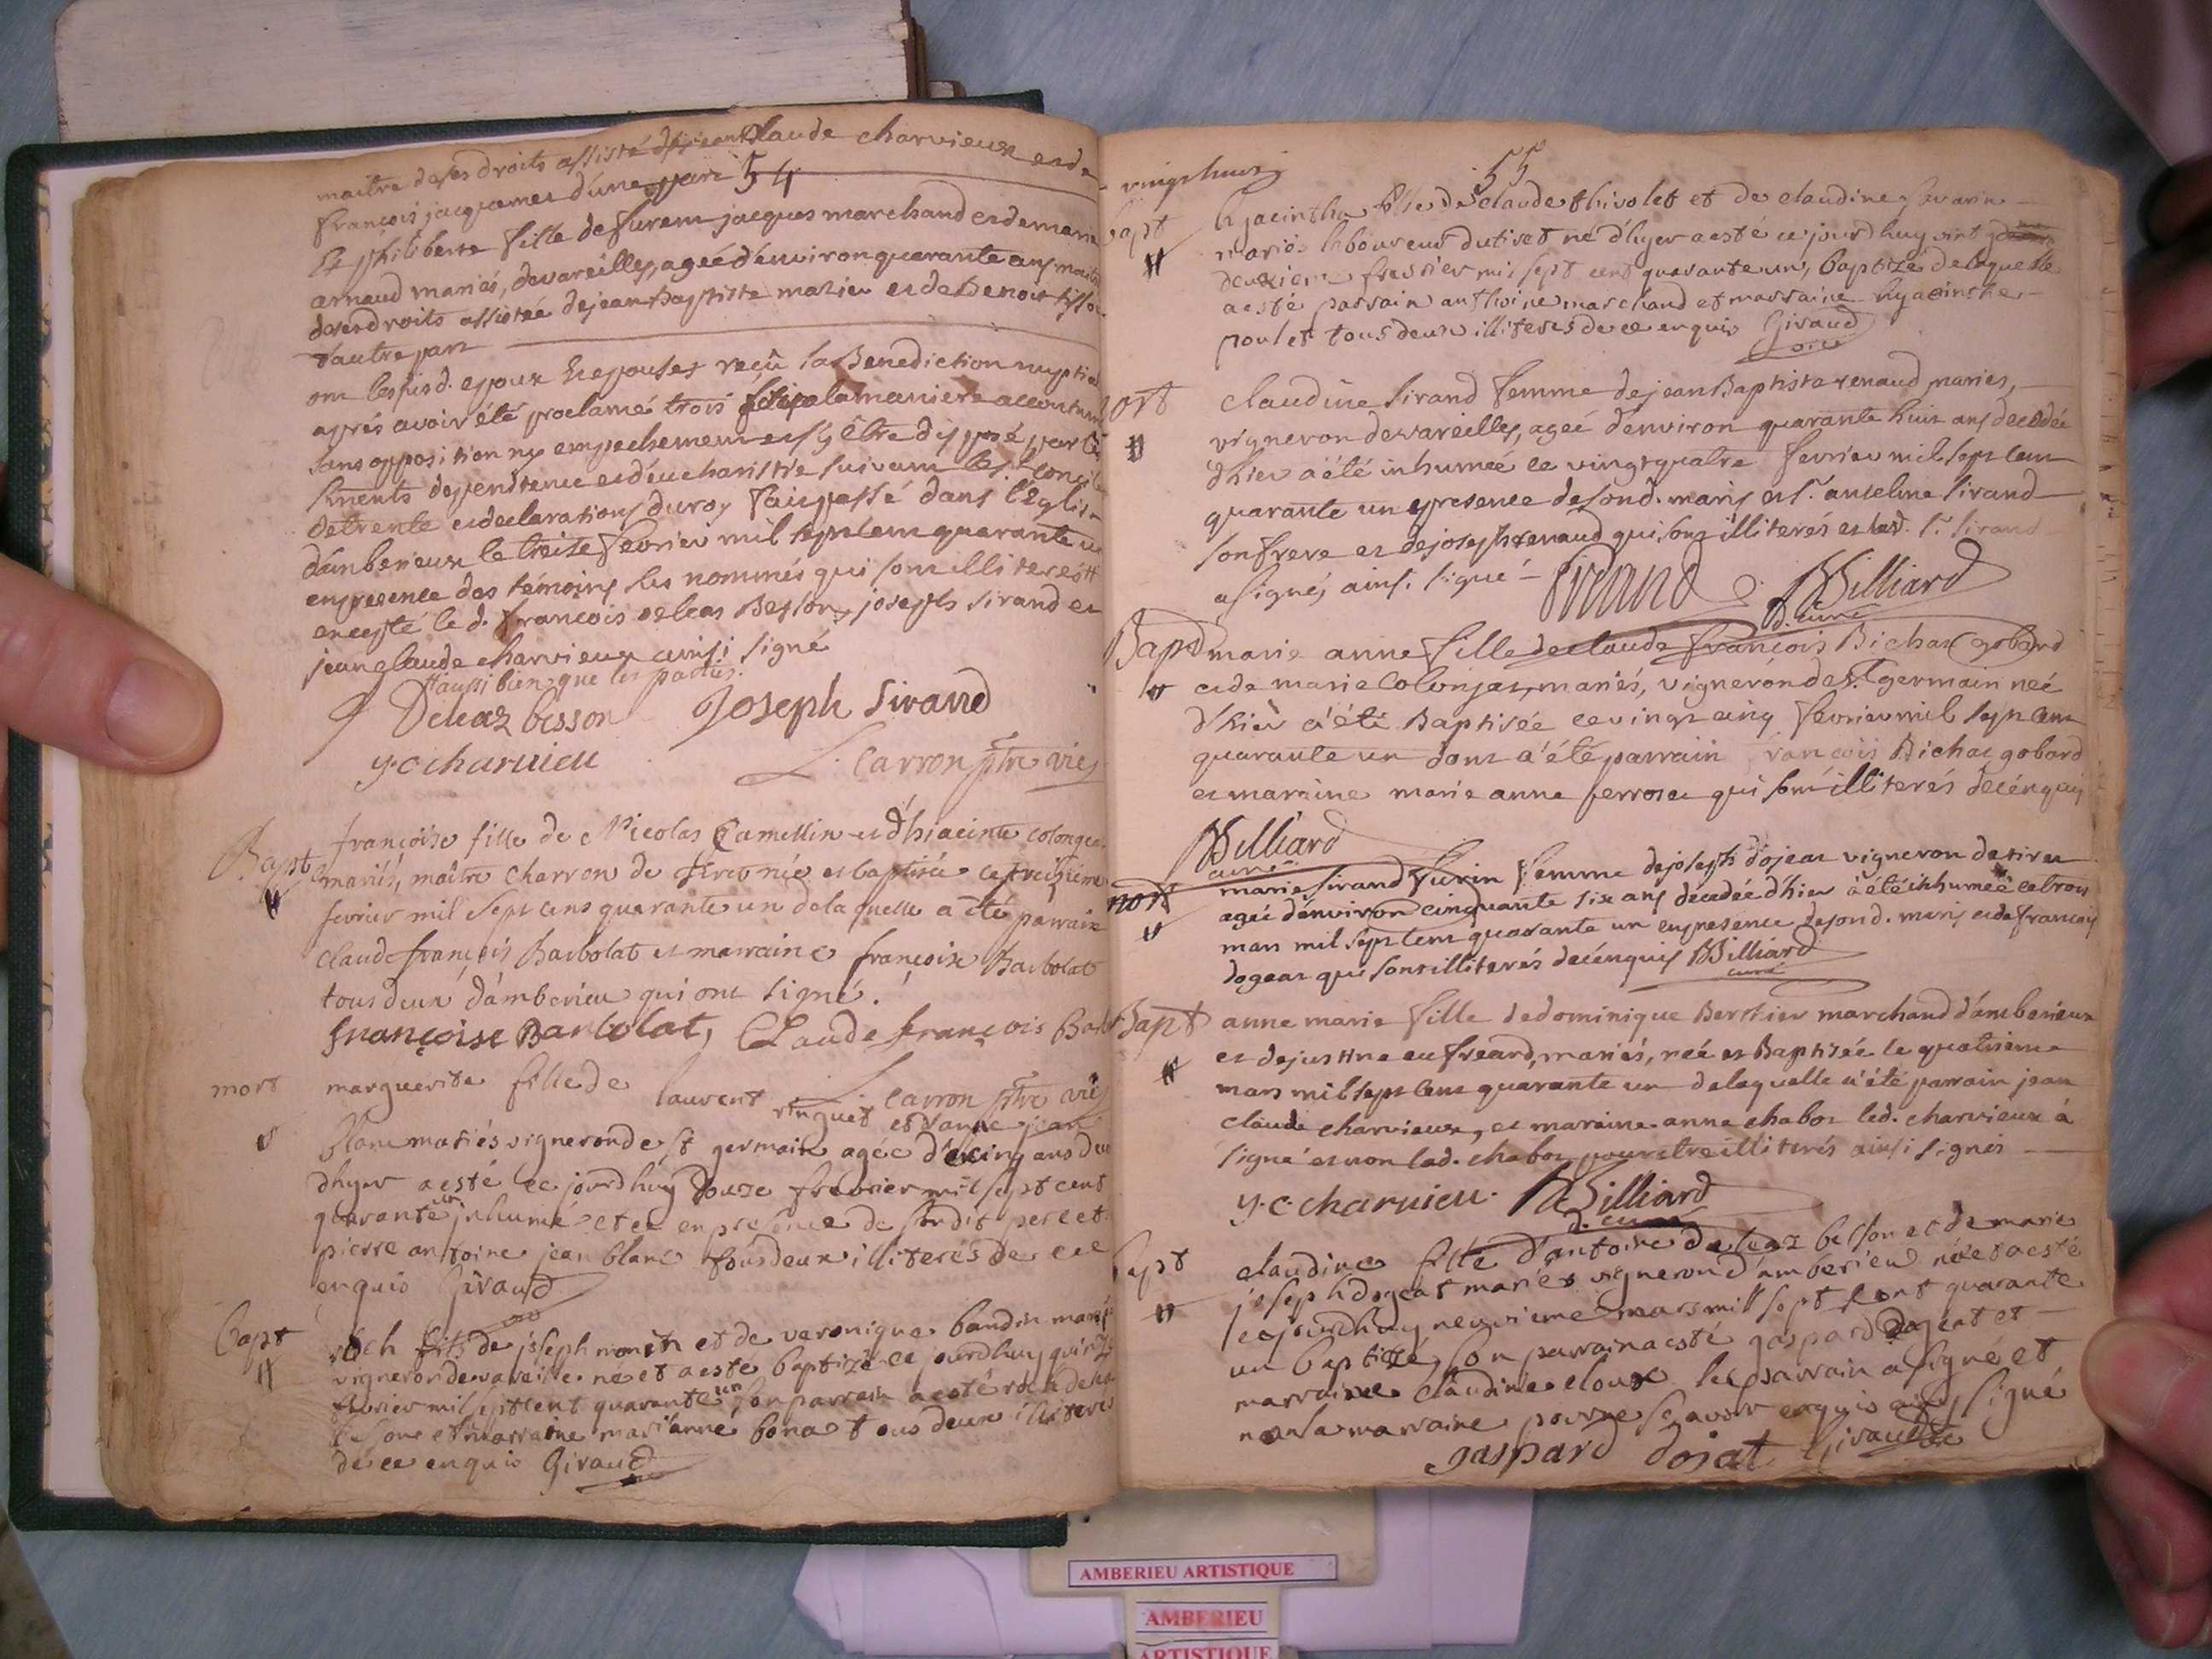 maitre deses droits assisté de jean Claude charvieux et de
françois jacquemet d'une part 54
Et philiberte fille de furent jacques marchand et de marie
arnaud mariés, de vareilles, ageé d'environ quarante ans maitre
deses droits assistée de jean Baptiste et de Benoit
d'autre part
ont lesusd. epoux et epouses reçû la Benediction nuptiale
aprés avoir été proclamé trois fois a la maniere accoutumé
sans opposition ny empechement et s'y être disposé par les
sments de penitence et d'eucharistie suivant le st. concile
de trente et declarations du roy fait passé dans l'Eglise
d'amberieux le treize fevrier mil sept cent quarante un
en presence des témoins les nommés qui sont illiterés #
excepté le d. françois deleas Besson, joseph sirand et
jean claude charvieux ainsi signé
# aussi bien que les parties.
f Deleaz besson Joseph Sirand
y.c charuieu L. Carron ptre vic
Bapt françoise fille de Nicolas Camellin et d'hiacinte colonge
mariés, maître charron de tiret née et baptisée ce treizieme
fevrier mil sept cens quarante un de laquelle a été parrain
Claude françois Barbolat et marraine françoise Barbolat
tous deux d'amberieu qui ont signé.
françoise Barbolat, CLaude françois Bar
L. Carron ptre vic
mort marguerite fille de laurent et d'anne jean
blanc mariés vigneron de st germain agée de cinq ans
dhyer a esté ce jourdhuy douze febvrier mil sept cent
quarante un inhumé et ce en presence de sondit pere et
pierre antoine jean blanc tous deux illiterés de ce
enquis Giraud
Bapt roch fils de joseph monin et de veronique baudin mariés
vigneron de vareille né et a esté baptizé ce jourdhuy quinze
fevrier mil sept cent quarante un son parrain a esté roch deleas
besson et marraine marianne bonat tous deux illiteres
de ce enquis Giraud
vingt huit 55
bapt hyacinthe fille de claude thivolet et de claudine savarin
mariés laboureur du tiret né d'hyer a esté ce jourdhuy vint
deuxieme fevrier mil sept cent quarante un, baptizé de laquelle
a esté parrain anthoine marchand et marraine hyacinthe
poulet tous deux illiterés de ce enquis Giraud
vic
mort claudine Sirand femme de jean Baptiste renaud mariés,
vigneron de vareilles, ageé d'environ quarante huit ans decedée
d'hier a été inhumeé ce vingt quatre fevrier mil sept cent
quarante un en presence de son d. maris et sr. anselme sirand
son frere et de joseph renaud qui sont illiterés et led. sr. sirand
a signé, ainsi signé – Sirand Billiard
d. curé
Bapt marie anne fille de claude françois Bichat gobard
et de marie Colonjat, mariés, vigneron de st germain neé
d'hier a été Baptisée ce vingt cinq fevrier mil sept cent
quarante un dont a été parrain françois Bichat gobard
et maraine marie anne perroset qui sont illiterés decénquis
Billiard
curé
mort marie sirand furin femme de joseph dojeat vigneron de tiret
ageé d'environ cinquante six ans décedée d'hier a été inhumeé ce trois
mars mil sept cent quarante un en presence de son d. maris et de françois
dogeat qui sont illiterés decénquis Billiard
curé
Bapt anne marie fille de dominique Berthier marchand d'amberieux
et de justine eufreard, mariés, neé et Baptisée le quatrieme
mars mil sept cent quarante un de laquelle a été parrain jean
claude charvieux, et maraine anne chabot led. charvieux à
signé et non lad. chabot pour etre illiterés ainsi signés
y.c charuieu. Billiard
d. curé
bapt claudine fille d'antoine deleaz besson et de marie
joseph dogeat mariés vigneron d'amberieu née et a esté
ce jourdhuy neuvieme mars mil sept cent quarante
un baptizé, son parrain a esté gaspard dogeat et
marraine claudine cloux le parrain a signé et
non la marraine pour ne sçavoir enquis ainsy signé
gaspard dojat Giraud vic
AMBERIEU ARTISTIQUE
AMBERIEU
ARTISTIQUE